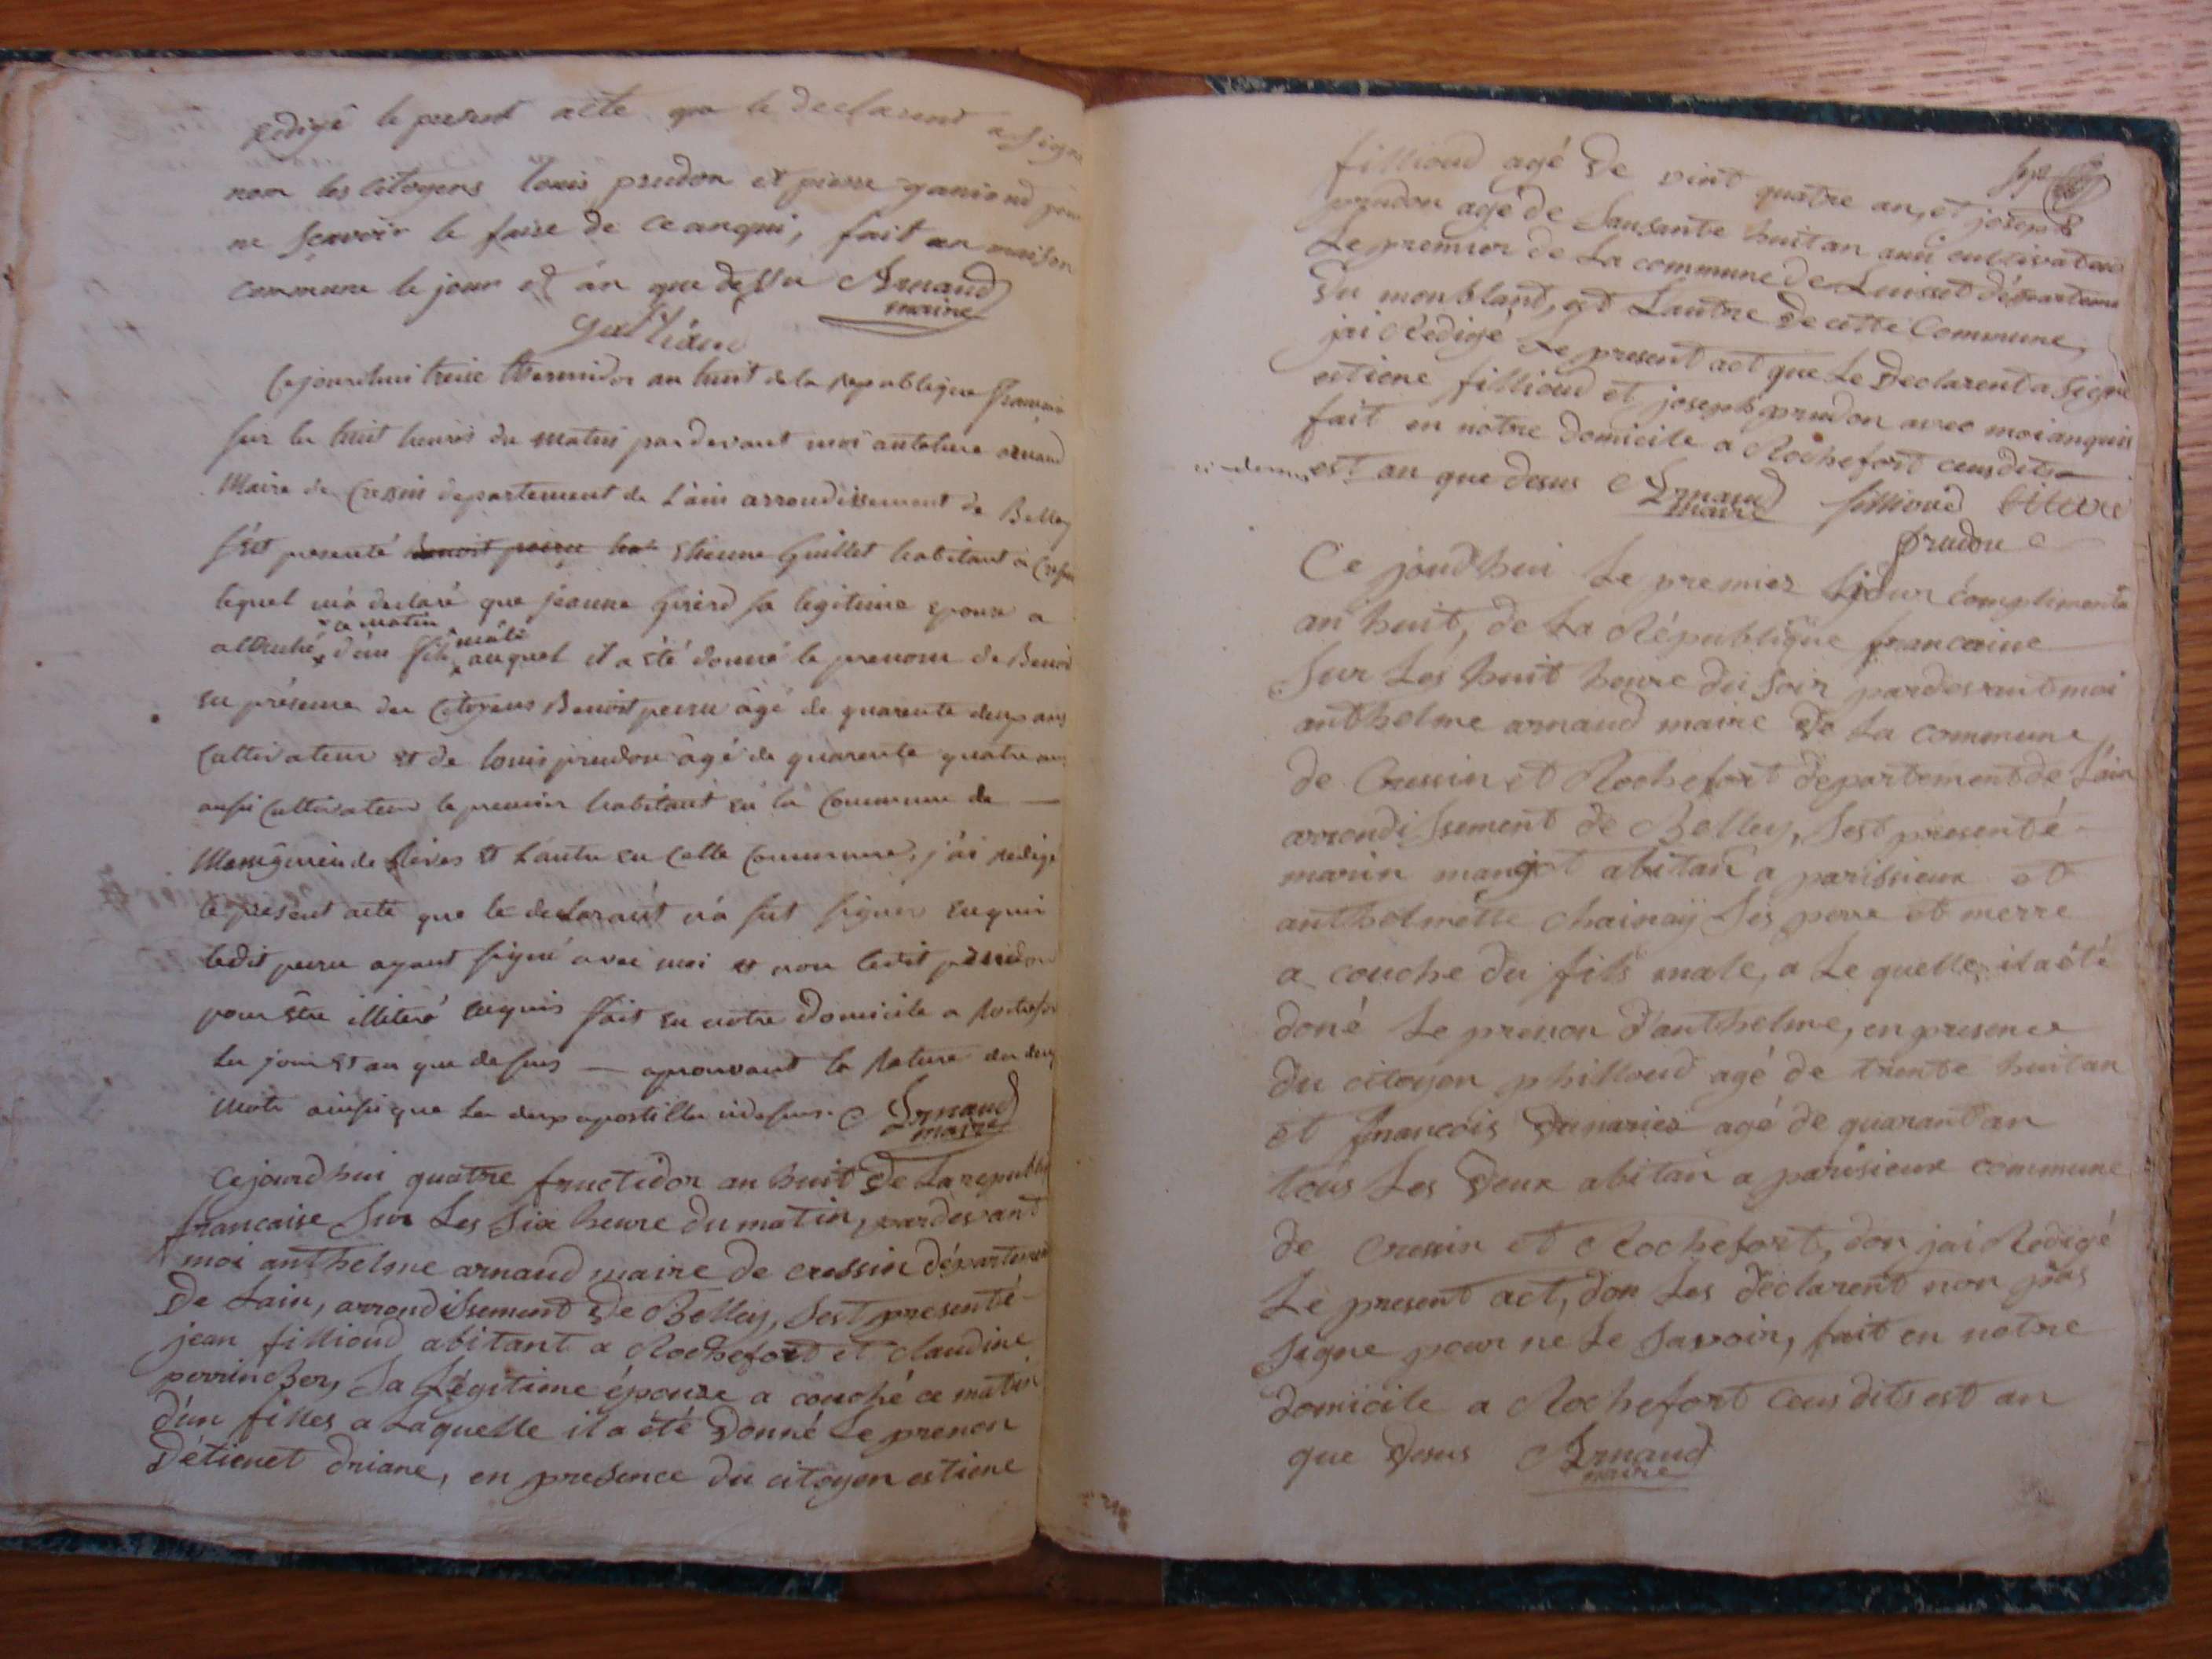 redigé le present acte que le declarent a signé
non les citoyens louis prudon et pierre ganiond pour
ne scavoir le faire de ce anquis, fait an maison
commune le jour et ân que dessu Arnaud
maire
Cejourdhui treize thermidor an huit de la republique francaise
sur les huit heures du matin par devant moi antelme arnaud
Maire de Cressin departement de L'ain arrondissement de Belley
s'est presenté etienne Guillet habitant à Cressin
lequel m'a declaré que jeanne girerd sa legitime epouse a
ce matin mâle
accouché d'un fils auquel il a été donné le prenom de Benoit
en présence des Citoyens Benoit peisu âgé de quarente deux ans
Cultivateur et de louis prudon âgé de quarente quatre ans
aussi Cultivateur le premier habitant en la Commune de
Massigneu de Rives et l'autre en Celle Commune, j'ai redigé
le présent acte que le declarant n'a sut signer enquis
ledit peisu ayant signé avec moi et non ledit prudon
pour être illiteré enquis fait en notre Domicile a Rochefort
les jour et an que dessus — aprouvant la Rature des deux
mots ainsi que les deux apostilles cidessus. Arnaud
maire
Cejourdhui quatre fructidor an huit de La republique
francaise Sur Les Six heure du matin, pardevant
moi anthelme arnaud maire de cressin département
De Lain, arrondissement De Belley, Sest presenté
jean fillioud abitant a Rochefort et claudine
perrin Ber, Sa Légitime épouze a couché ce matin
d'un filles a Laquelle il a été Donné Le prenon
Détienet driane, en presence du citoyen estiene
fillioud agé de vint quatre an, et joseph
prudon agé de Sausante huit an ausi cultivateur
Le premier de La commune de Luisset département
Du monblant, et Lautre De cette Commune,
jai Rédigé Le present act que Le Declarent a Signé
estiene fillioud et joseph prudon avec moi anquis
fait en notre domicile a Rochefort ceus dits
est an que desus Arnaud fillioud Etiene
maire prudon
Ce joud'hui Le premier jour complimente
an huit, de La République francaise
Sur Les huit heure du Soir pardevant moi
anthelme arnaud maire De La commune
de Cressin et Rochefort departement de L'ain
arrondissement de Belley, Sest presenté
marin mangot abitan a parissieux et
anthelmette Chainay Ses perre et merre
a couche du fils male, a Le quelle, il a été
doné Le prenon d'anthelme, en presence
du citoyen philloud agé de trente huit an
et francois Dumarier agé de quarant an
tous Les Deux abitan a parisieux commune
de Cressin et Rochefort, don jai Redigé
Le present act, don Les déclarent non pas
Signe pour ne Le Savoir, fait en notre
domicile a Rochefort ceus dits est an
que Desus Arnaud
maire